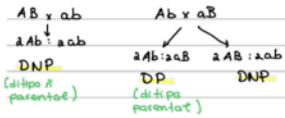 AB x ab
2Ab : 2ab
DNP
(ditipo x
parental)
Ab x aB
2Ab:2aB
DP
(ditipa
parental)
2AB : 2ab
DNP